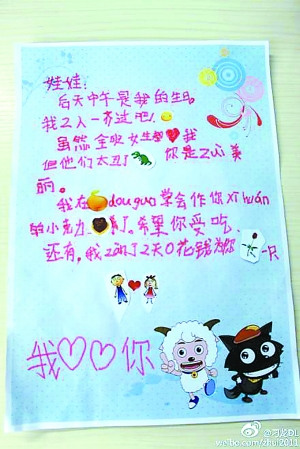 娃娃:
后天中午是我的生日,
我2人一齐过吧!
虽然全班女生都❤我
但他们太丑了 你是Zui美
丽。
我在 douguo学会作你xǐhuán
的小巧力 了。希望你爱吃
还有,我zan了2天0花钱为你 一只
我♡♡你
weibo.com/zhui2011